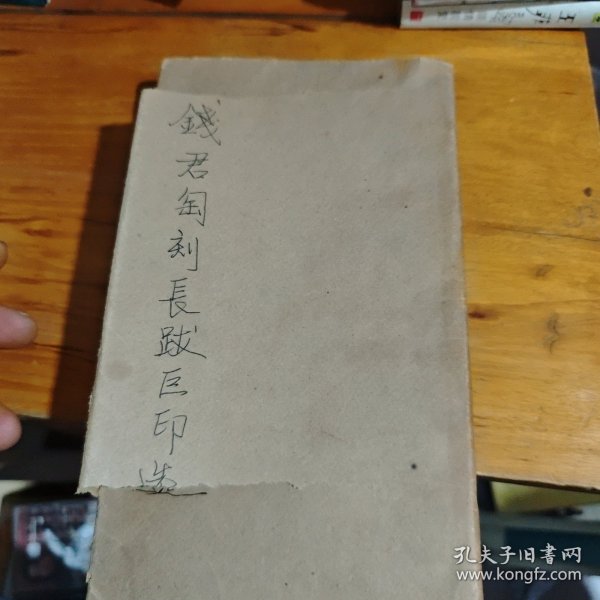 錢君匋刻長跋巨印选
孔夫子旧書网
www.kongfz.com